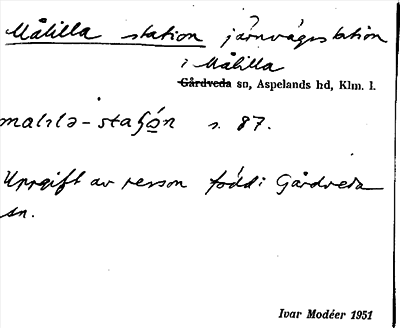 Målilla station järnvägsstation
i Målilla
Gårdveda sn, Aspelands hd, Klm. l.
målila-staʃọ́n s. 87.
Uppgift av person född i Gårdveda
sn.
Ivar Modéer 1951